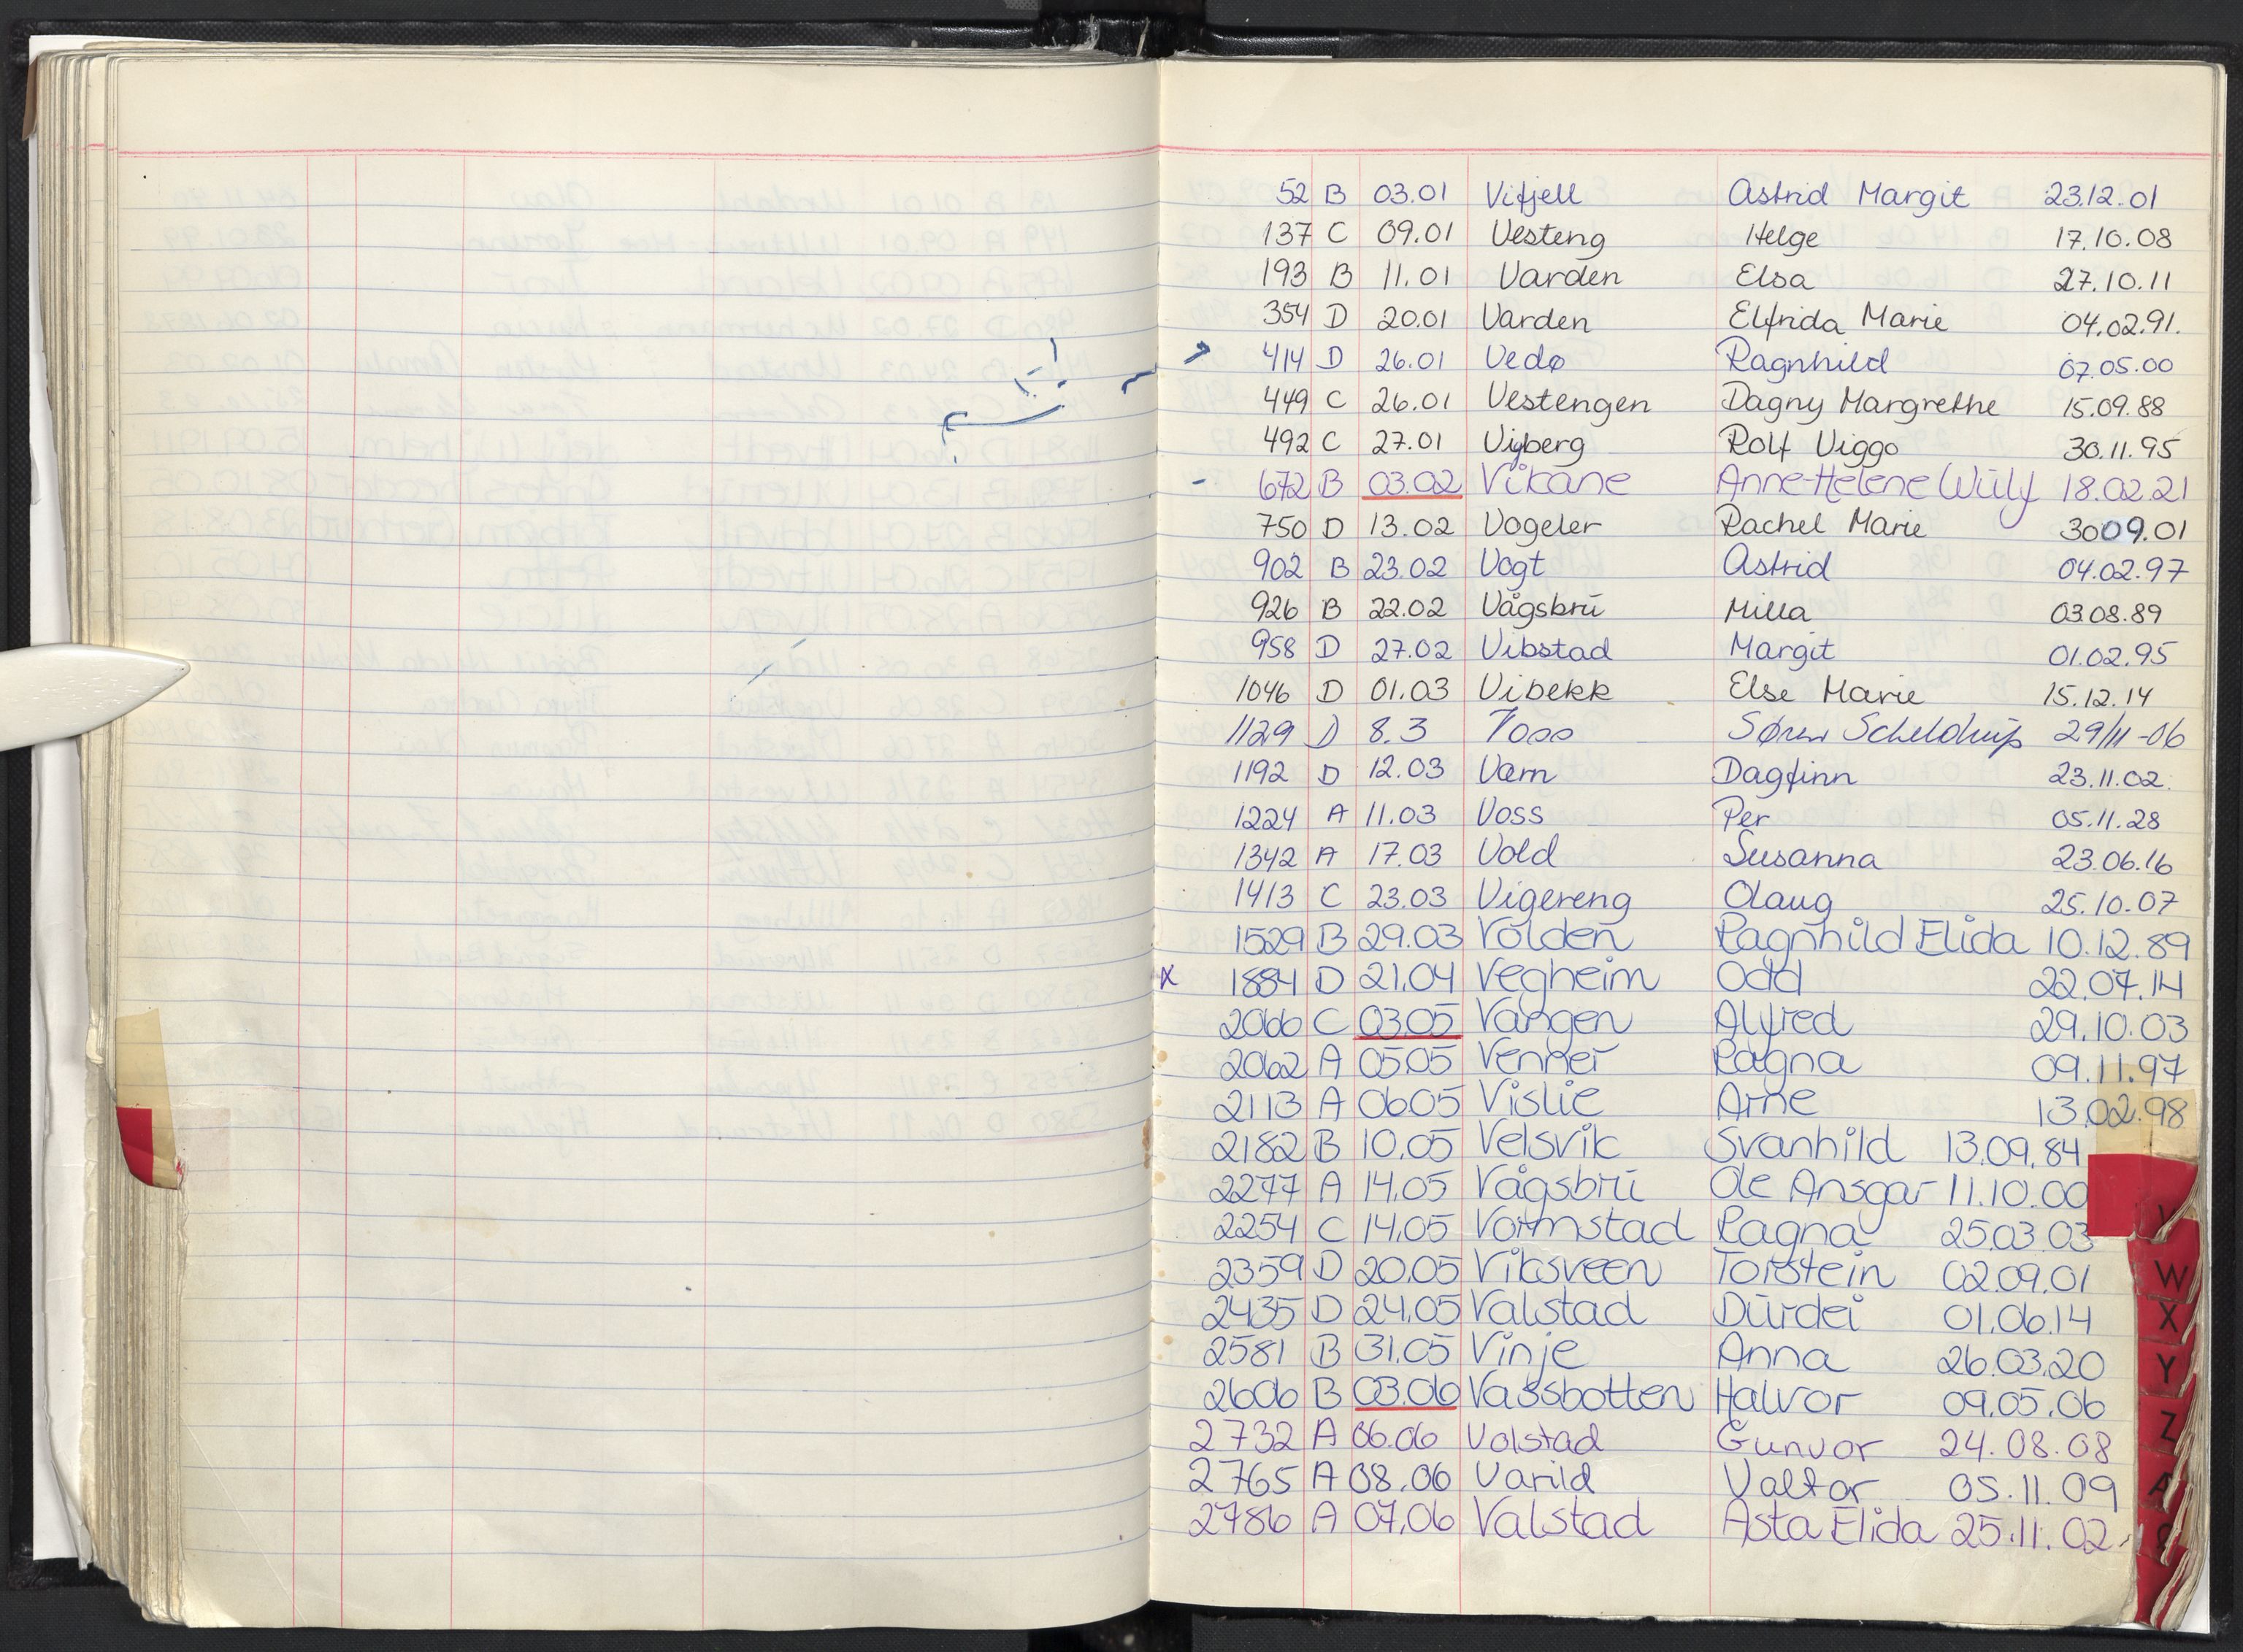 52 B 03.01 Vifjell Astrid Margit 23.12.01
137 C 09.01 Vesteng Helge 17.10.08
193 B 11.01 Varden Elsa 27.10.11
354 D 20.01 Varden Elfrida Marie 04.02.91.
414 D 26.01 Vedø Ragnhild 07.05.00
449 C 26.01 Vestengen Dagny Margrethe 15.09.88
492 C 27.01 Vigberg Rolf Viggo 30.11.95
672 B 03.02 Vikane Anne-Helene Wülf 18.02.21
750 D 13.02 Vogeler Rachel Marie 3009.01
902 B 23.02 Vogt Astrid 04.02.97
926 B 22.02 Vågsbrü Milla 03.08.89
958 D 27.02 Vibstad Margit 01.02.95
1046 D 01.03 Vibekk Else Marie 15.12.14
1129 D 8.3 Voss Søren Scheldrup 29/11-06
1192 D 12.03 Varn Dagfinn 23.11.02.
1224 A 11.03 Voss Per 05.11.28
1342 A 17.03 Vold Susanna 23.06.16
1413 C 23.03 Vigereng Olaug 25.10.07
1529 B 29.03 Volden Ragnhild Elida 10.12.89
x 1884 D 21.04 Vegheim Odd 22.07.14
2066 C 03.05 Vangen Alfred 29.10.03
2062 A 05.05 Venner Ragna 09.11.97
2113 A 06.05 Vislie Arne 13.02.98
2182 B 10.05 Velsvik Svanhild 13.09.84
2277 A 14.05 Vågsbrü Ole Ansgar 11.10.00
V
2254 C 14.05 Vormstad Ragna 25.03.03
2359 D 20.05 Viksveen Torstein 02.09.01
W
2435 D 24.05 Valstad Dürdei 01.06.14
X
2581 B 31.05 Vinje Anna 26.03.20
Y
2606 B 03.06 Vassbotten Halvor 09.05.06
Z
2732 A 06.06 Volstad Gunvor 24.08.08
2765 A 08.06 Varild Valtor 05.11.09
2786 A 07.06 Valstad Asta Elida 25.11.02.